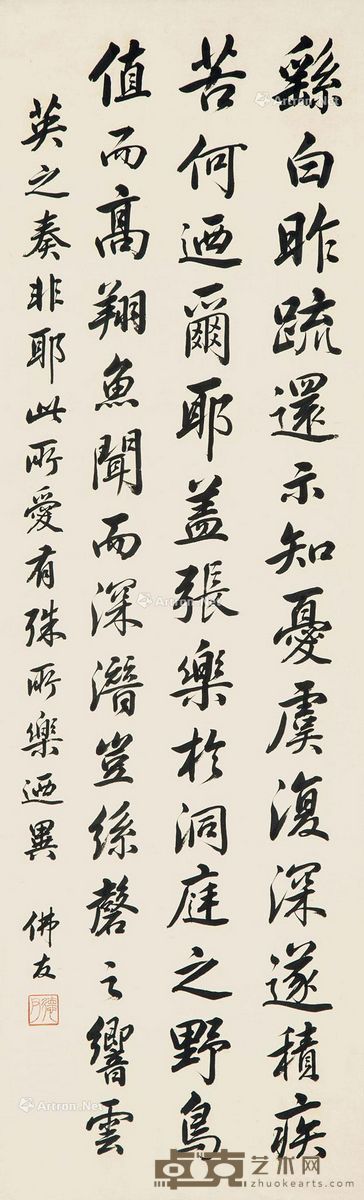 繇白昨疏還示知憂虞復深遂積疾
苦何迺爾耶盖張樂於洞庭之野鳥
值而高翔魚聞而深潛豈絲磬之響雲
英之奏非耶此所愛有殊所樂迺異
佛友
Artron.Net
Artron.Net
Artron.Net
卓克艺术网
www.zhuokearts.com